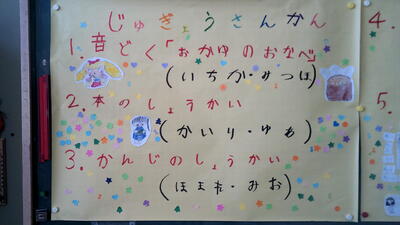 じゅぎょうさんかん
1. 音どく「おかゆのおなべ」
(いちか・みつほ)
2. 本のしょうかい
(かいり・ゆあ)
3. かんじのしょうかい
(ほまれ・みお)
4.
5.